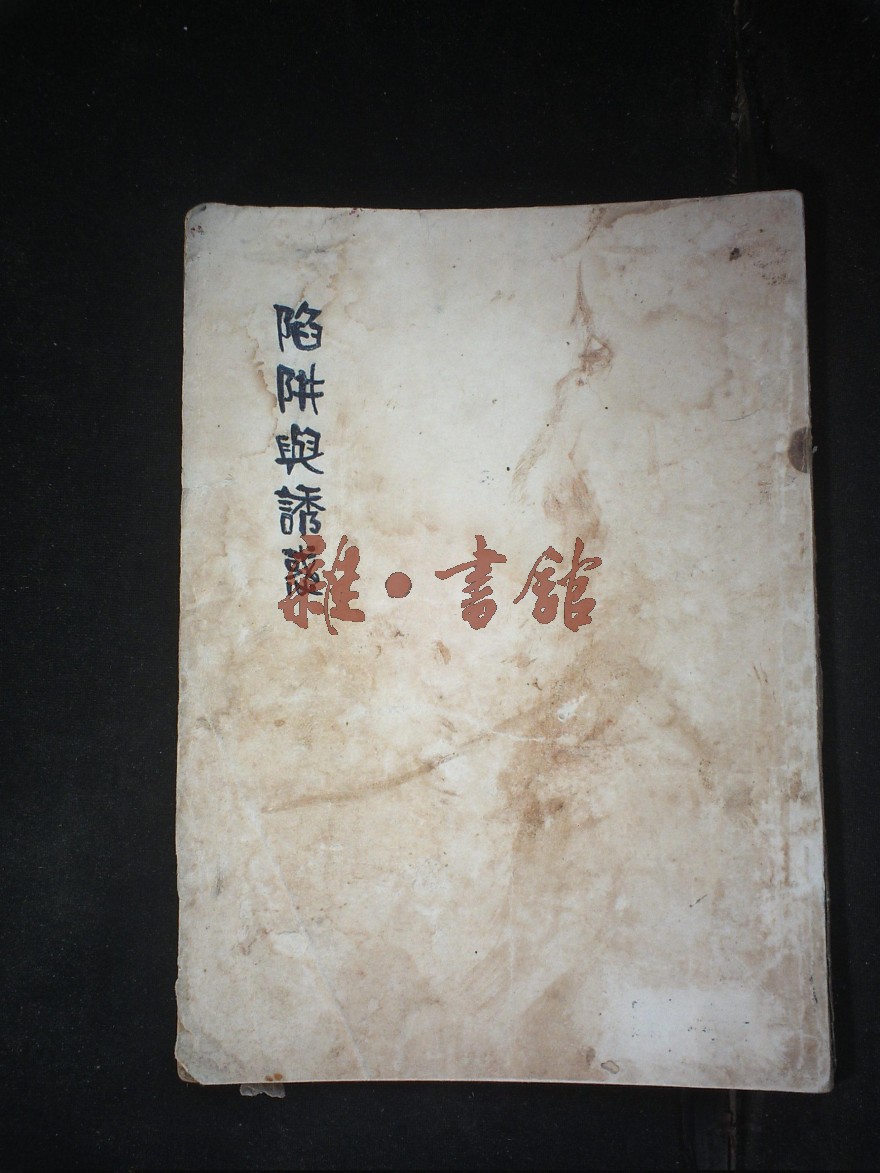 陷阱與誘惑
雜·書館